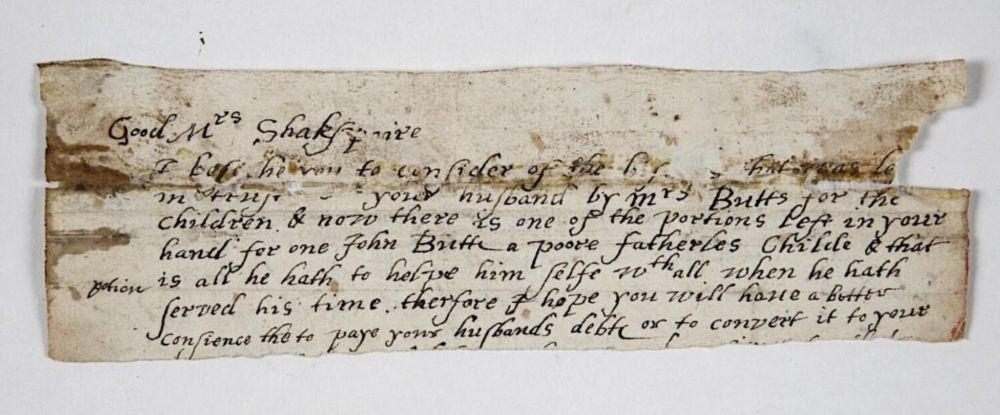 Good Mrs Shakspaire
I beseche you to consider of the that was le
in trust your husband by Mrs Butts for the
children & now there is one of the portions left in your
hand for one John Butte a poore fatherles Childe & that
is all he hath to helpe him selfe wth all when he hath
served his time. therfore I hope you will haue a better
Consience the to paye your husbands debte or to convert it to your